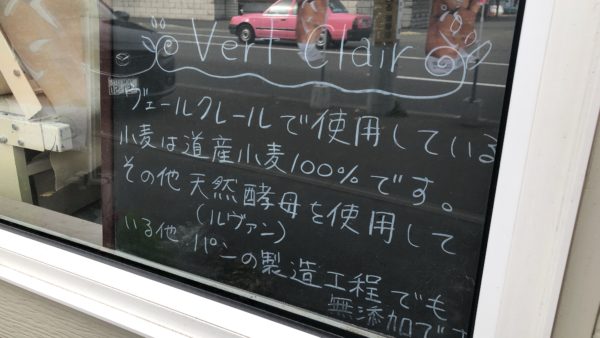 Vert Clair
ヴェールクレールで使用している
小麦は道産小麦100%です。
その他 天然酵母を使用して
(ルヴァン)
いる他、パンの製造工程でも
無添加です